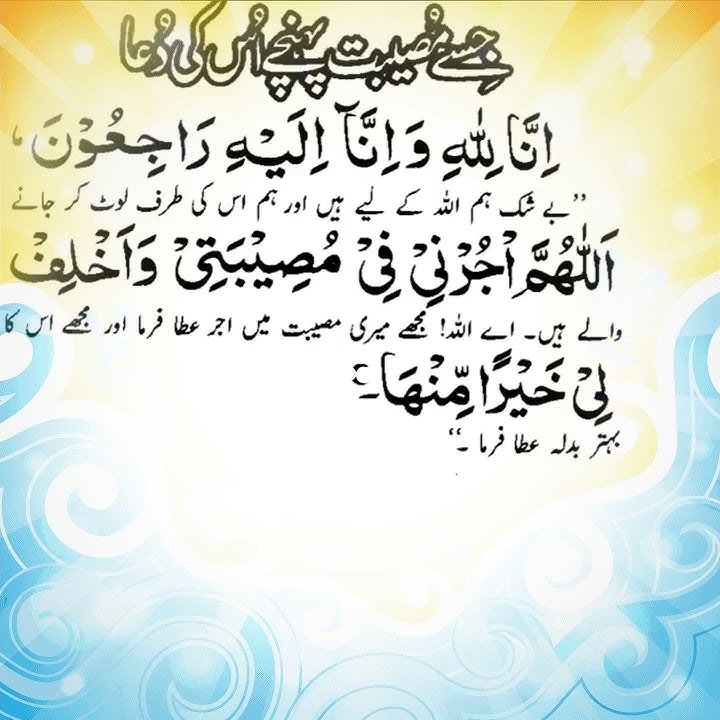 جسے مصیبت پہنچے اُس کی دُعا
اِنَّا لِلّٰهِ وَاِنَّآ اِلَيْهِ رَاجِعُوْنَ،
’’بے شک ہم اللہ کے لیے ہیں اور ہم اس کی طرف لوٹ کر جانے
اَللّٰهُمَّ اْجُرْنِيْ فِيْ مُصِيْبَتِيْ وَاَخْلِفْ
والے ہیں۔ اے اللہ! مجھے میری مصیبت میں اجر عطا فرما اور مجھے اس کا
لِيْ خَيْرًا مِّنْهَا۔
بہتر بدلہ عطا فرما۔‘‘